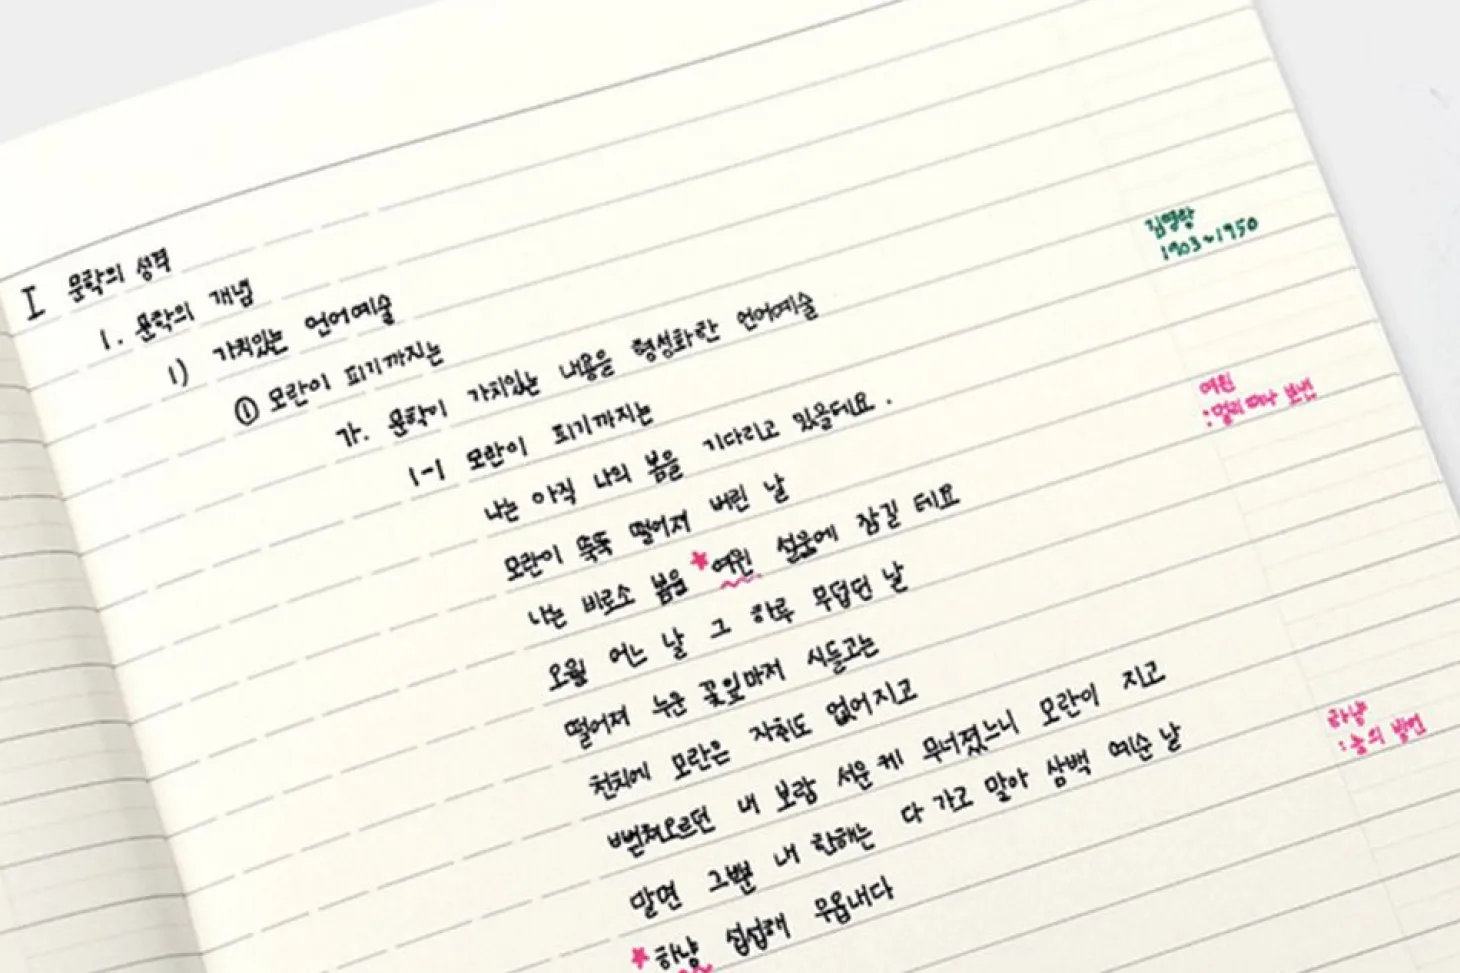 I 문학의 성격
1. 문학의 개념
1) 가치있는 언어예술
① 모란이 피기까지는
가. 문학이 가치있는 내용을 형성화한 언어예술
1-1 모란이 피기까지는
나는 아직 나의 봄을 기다리고 있을테요.
모란이 뚝뚝 떨어져 버린 날
나는 비로소 봄을 ★여윈 설움에 잠길 테요
오월 어느 날 그 하루 무덥던 날
떨어져 누운 꽃잎마저 시들고는
천지에 모란은 자취도 없어지고
뻗쳐오르던 내 보람 서운케 무너졌느니 모란이 지고
말면 그뿐 내 한해는 다 가고 말아 삼백 예순 날
★하냥 섭섭해 우옵내다
김영랑
1903~1950
여윈
:멀리 떠나 보낸
하냥
:늘의 방언